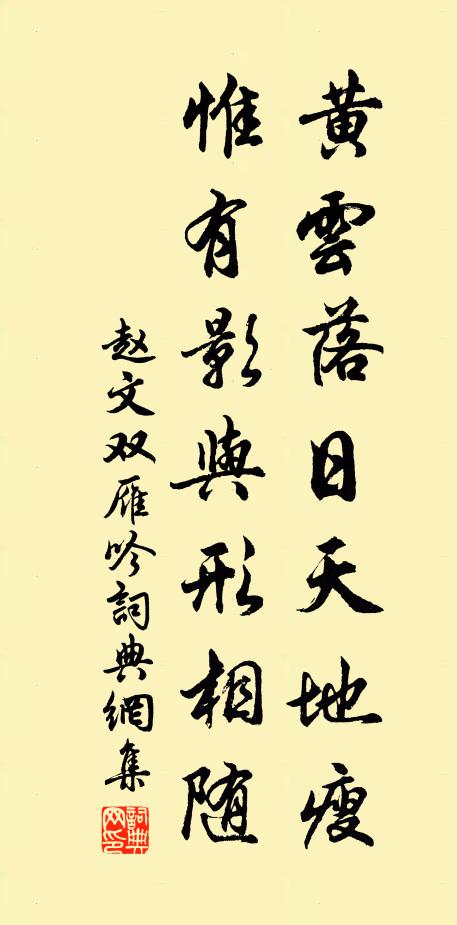 黃雲落日天地瘦
惟有影與形相随
赵文双雁吟詞典網集
詞典網印